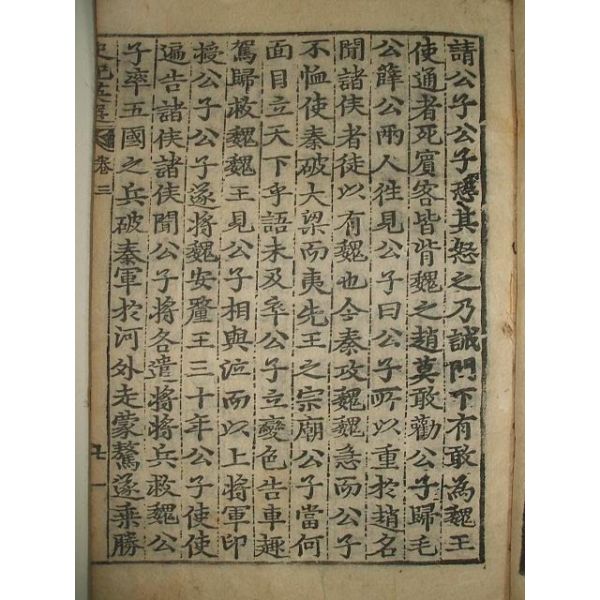 請公子公子恐其怒之乃誡門下有敢為魏王
使通者死賓客皆背魏之趙莫敢勸公子歸毛
公薛公兩人往見公子曰公子所以重於趙名
聞諸侯者徒以有魏也今秦攻魏魏急而公子
不恤使秦破大梁而夷先王之宗廟公子當何
面目立天下乎語未及卒公子立變色告車趣
駕歸救魏魏王見公子相與泣而以上將軍印
授公子公子遂將魏安釐王三十年公子使使
遍告諸侯諸侯聞公子將各遣將將兵救魏公
子率五國之兵破秦軍於河外走蒙驁遂乘勝
史記英選 卷三